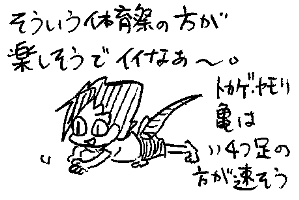 そういう体育祭の方が
楽しそうでイイなぁ〜。
トカゲ、ヤモリ
亀は
4つ足の
方が速そう